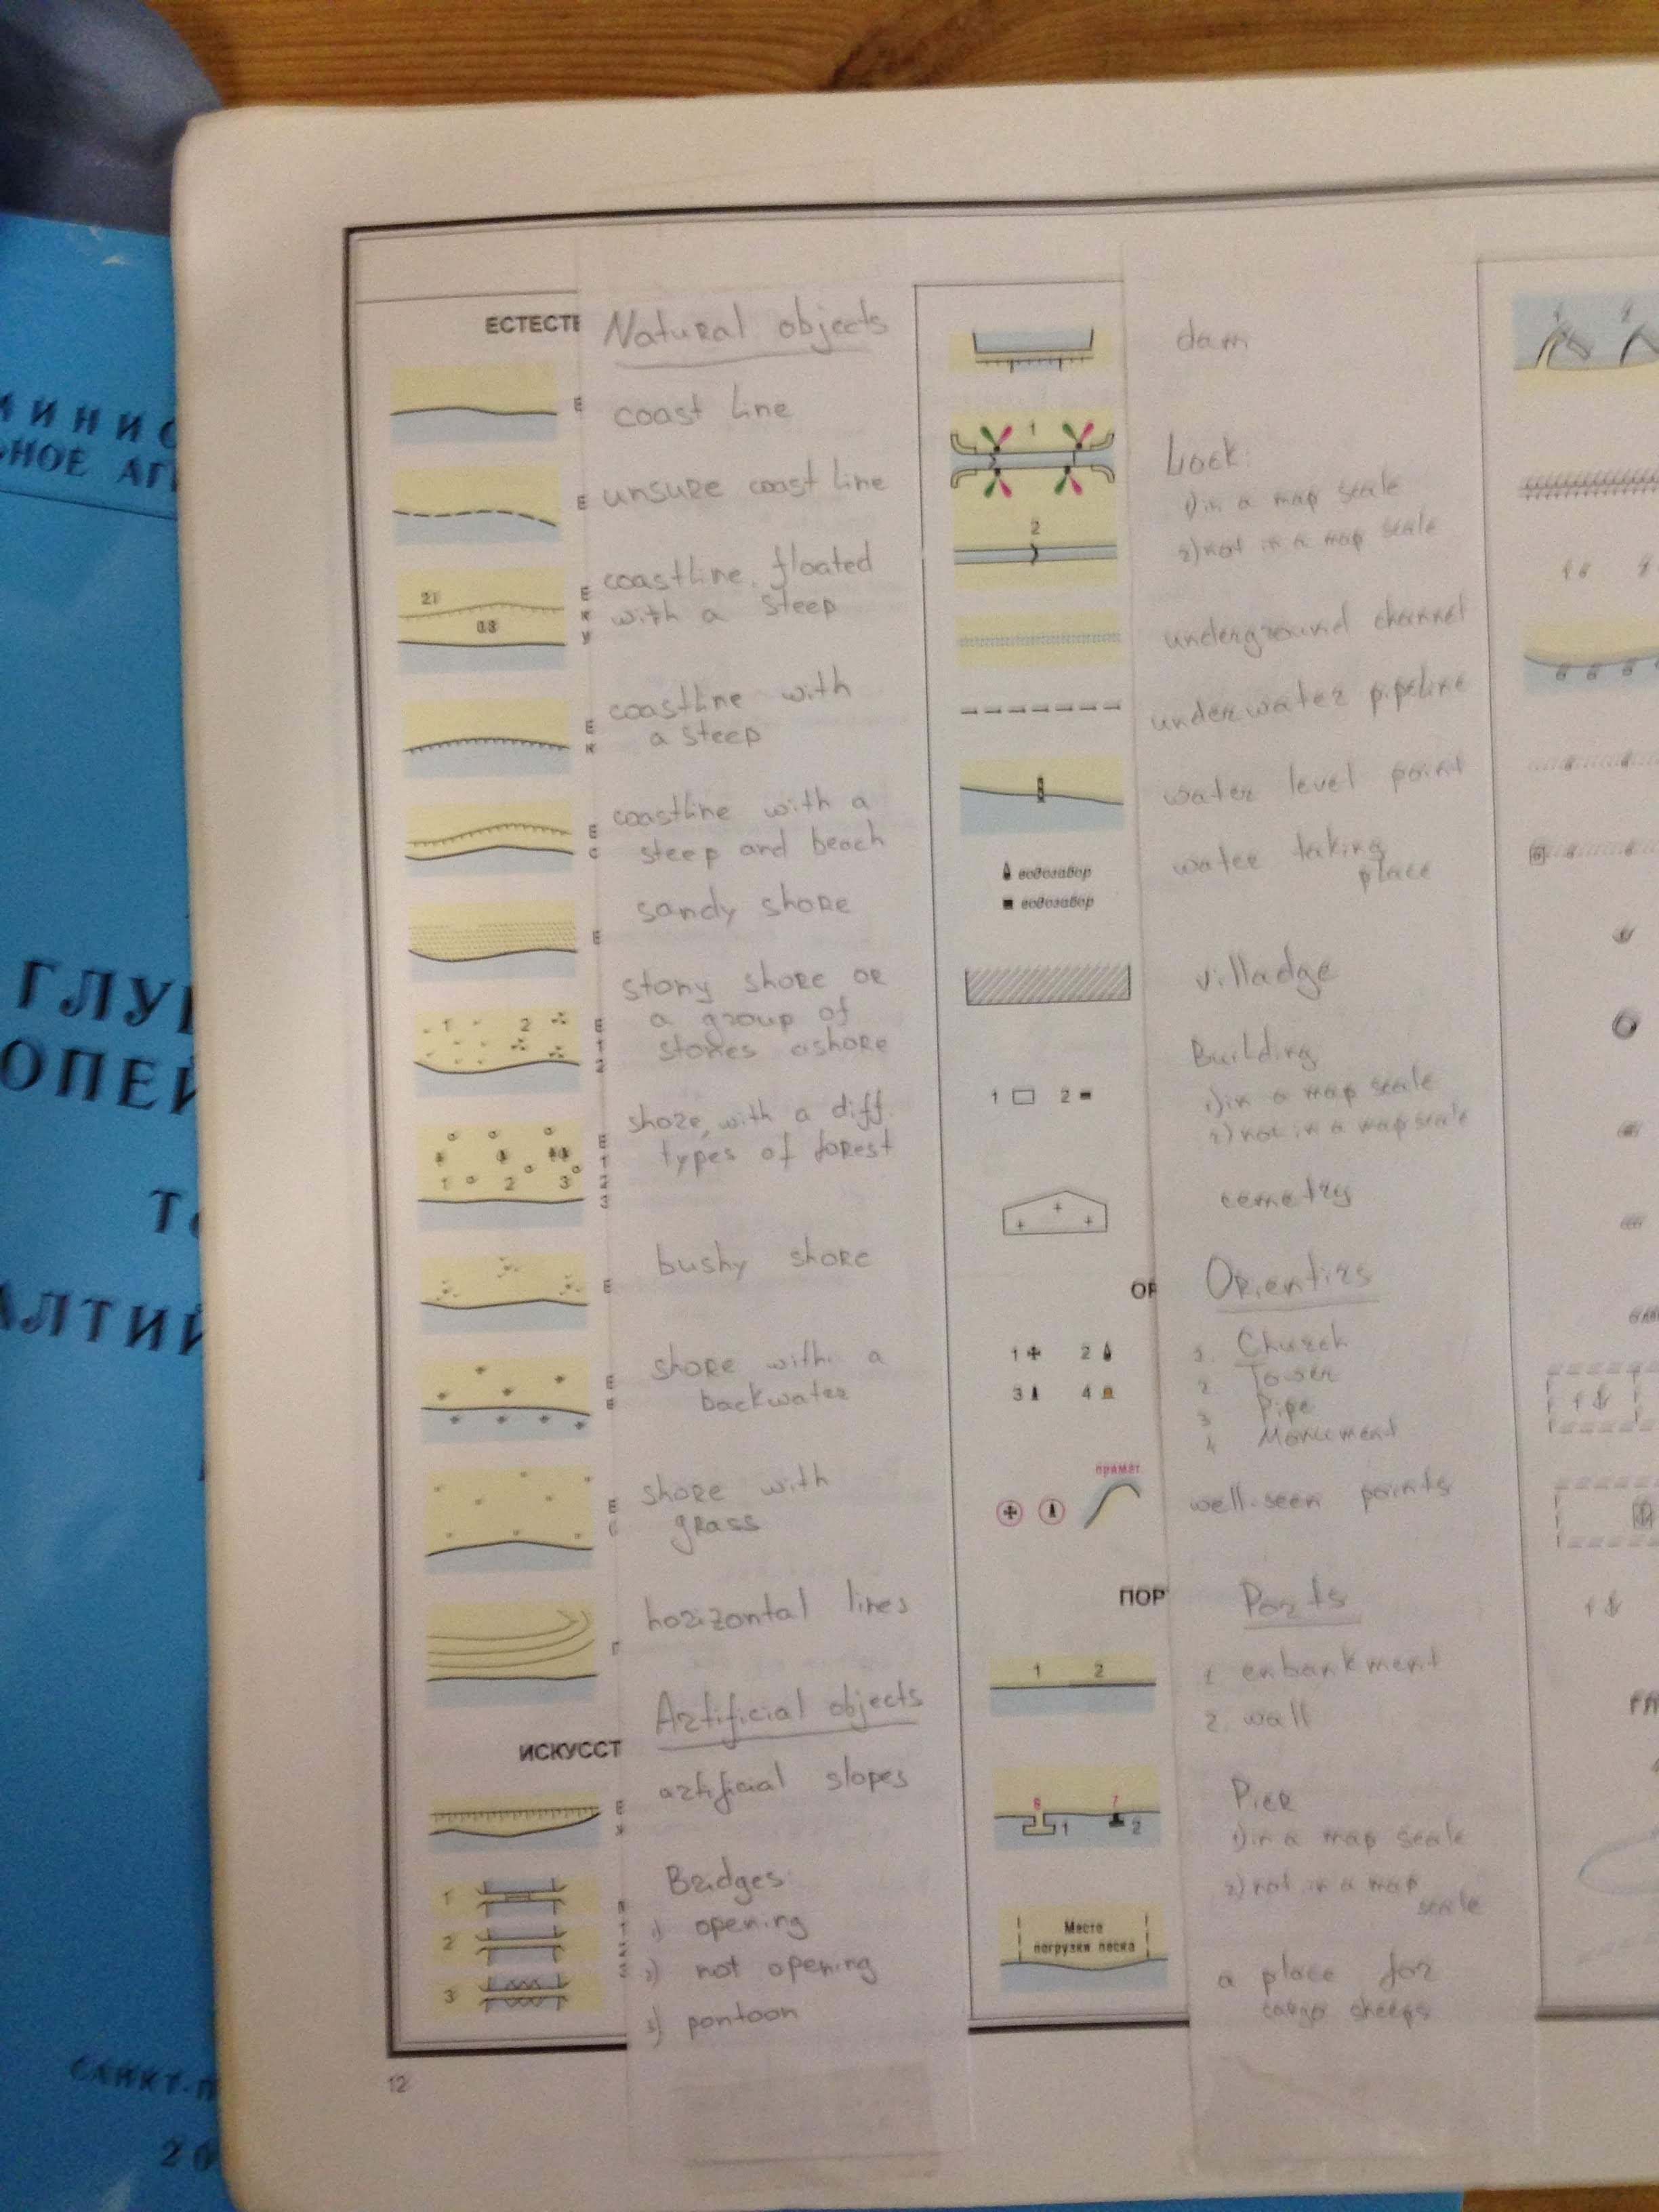 МИНИС
ЬНОЕ АГ
ГЛУ
ОПЕЙ
АЛТИЙ
САНКТ-П
20
ЕСТЕСТВ
Natural objects
coast line
Е
unsure coast line
Е
21
0.3
coastline, floated
with a steep
Е
к
у
coastline with
a steep
Е
н
coastline with a
steep and beach
Е
с
sandy shore
Е
1 2
stony shore or
a group of
stones ashore
Е
1
2
1 2 3
shore, with a diff.
types of forest
Е
1
2
3
bushy shore
Е
shore with a
backwater
Е
в
shore with
grass
Е
horizontal lines
Г
ИСКУССТ
Artificial objects
artificial slopes
Е
у
Bridges:
1
1) opening
2
2) not opening
3
3) pontoon
12
dam
1
Lock:
1) in a map scale
2
2) not in a map scale
underground channel
underwater pipeline
water level point
водозабор
водозабор
water taking
place
villadge
1 2
Building
1) in a map scale
2) not in a map scale
cemetry
ОР
Orientirs
1 2
3 4
1. Church
2. Tower
3 Pipe
4 Monument
примет.
well-seen points
ПОР
Ports
1 2
1 enbankment
2. wall
6 1 7 2
Pier
1) in a map scale
2) not in a map
scale
Место
погрузки песка
a place for
cargo sheeps